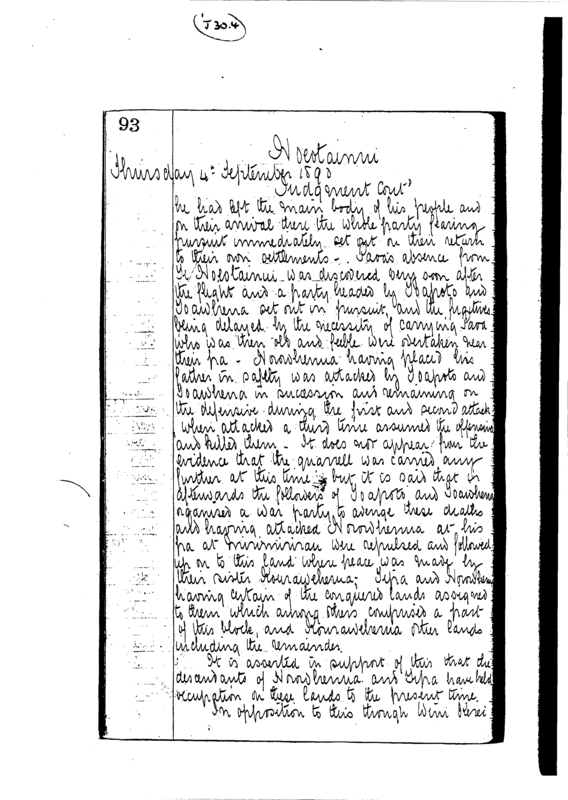 J 30.4
93
Hoeotainui
Thursday 4th September 1890
Judgment Contd
he had left the main body of his people and
on their arrival there the whole party fearing
pursuit immediately set out on their return
to their own settlements -. absence from
Hoeotainui was discovered very soon after
the flight and a party headed by and
set out in pursuit, and the fugitives
being delayed by the necessity of carrying
who was then old and feeble were overtaken near
their pa - having placed his
father in safety was attacked by and
in succession and remaining on
the defensive during the first and second attack
when attacked a third time assumed the offensive
and killed them - It does not appear from the
evidence that the quarrell was carried any
further at this time but it is said that
afterwards the followers of and
organised a war party to avenge these deaths
and having attacked at his
pa at were repulsed and followed
up on to this land where peace was made by
their sister and
having certain of the conquered lands assigned
to them which among others comprised a part
of this block, and other lands
including the remainder.
It is asserted in support of this that the
descendants of and have held
occupation on these lands to the present time.
In opposition to this through Wini